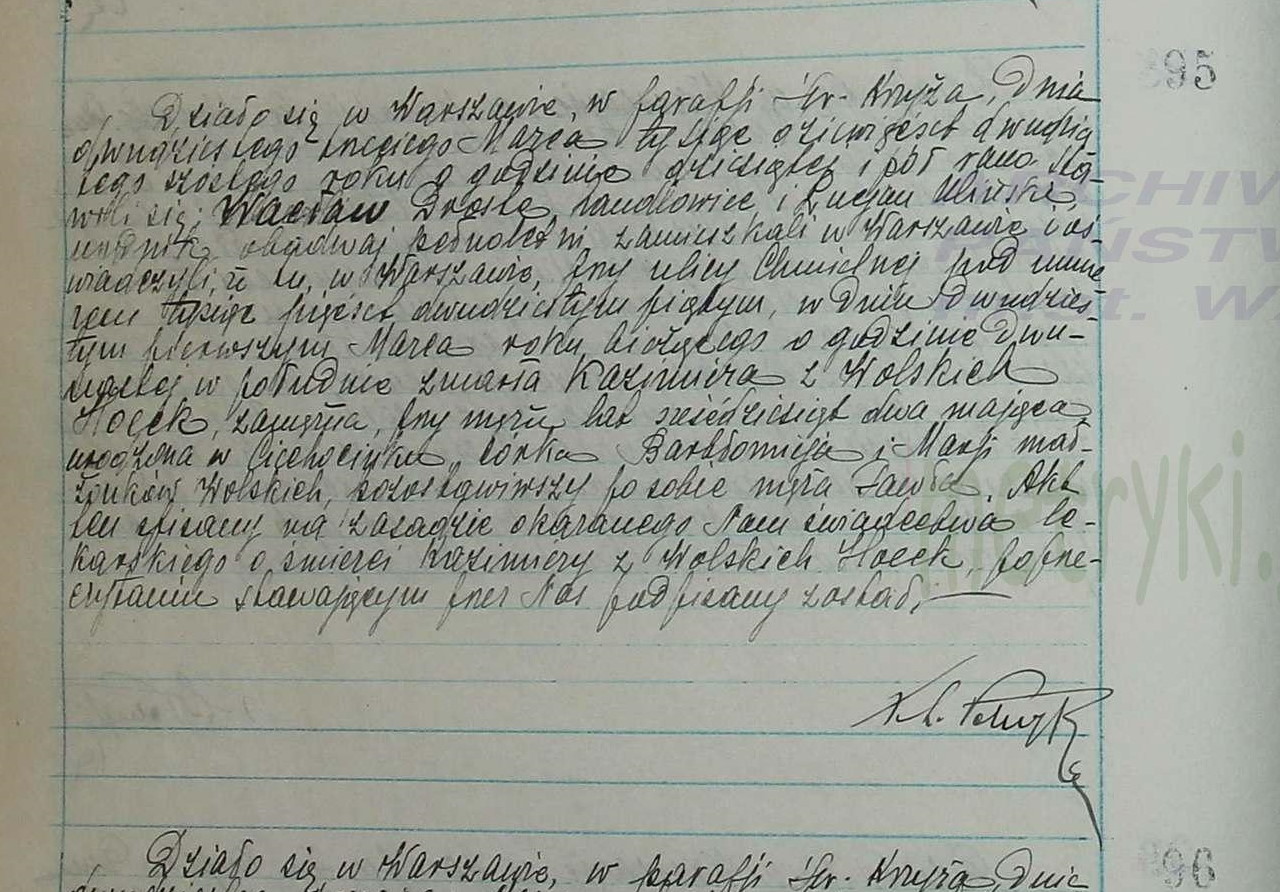 95
Działo się w Warszawie, w parafji Św. Krzyża, Dnia
dwudziestego trzeciego Marca tysiąc dziewięćset dwudzies
tego szóstego roku o godzinie dziesiątej i pół rano Sta-
wili się; Wacław Droste, handlowiec i Lucjan Uliński,
urzędnik, obydwaj pełnoletni, zamieszkali w Warszawie i oś-
wiadczyli, iż tu, w Warszawie, przy ulicy Chmielnej pod nume
rem tysiąc pięćset dwudziestym piątym, w dniu dwudzies-
tym pierwszym Marca roku bieżącego o godzinie Dwu-
nastej w południe zmarła Kazimiera z Wolskich
Hoeck, zamężna, przy mężu, lat sześćdziesiąt dwa mająca
urodzona w Ciechocinku, córka Bartłomieja i Marji mał-
żonków Wolskich, pozostawiwszy po sobie męża Pawła. Akt
ten spisany na zasadzie okazanego Nam świadectwa le-
karskiego o śmierci Kazimiery z Wolskich Hoeck, poprze-
czytaniu stawającym przez Nas podpisany został.
Działo się w Warszawie, w parafji Św. Krzyża, Dnia
96
ARCHIW
PAŃSTW
st. W
metryki.